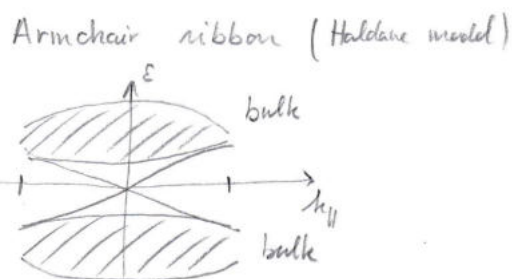 Armchair ribbon (Haldane model)
ε
bulk
k||
bulk